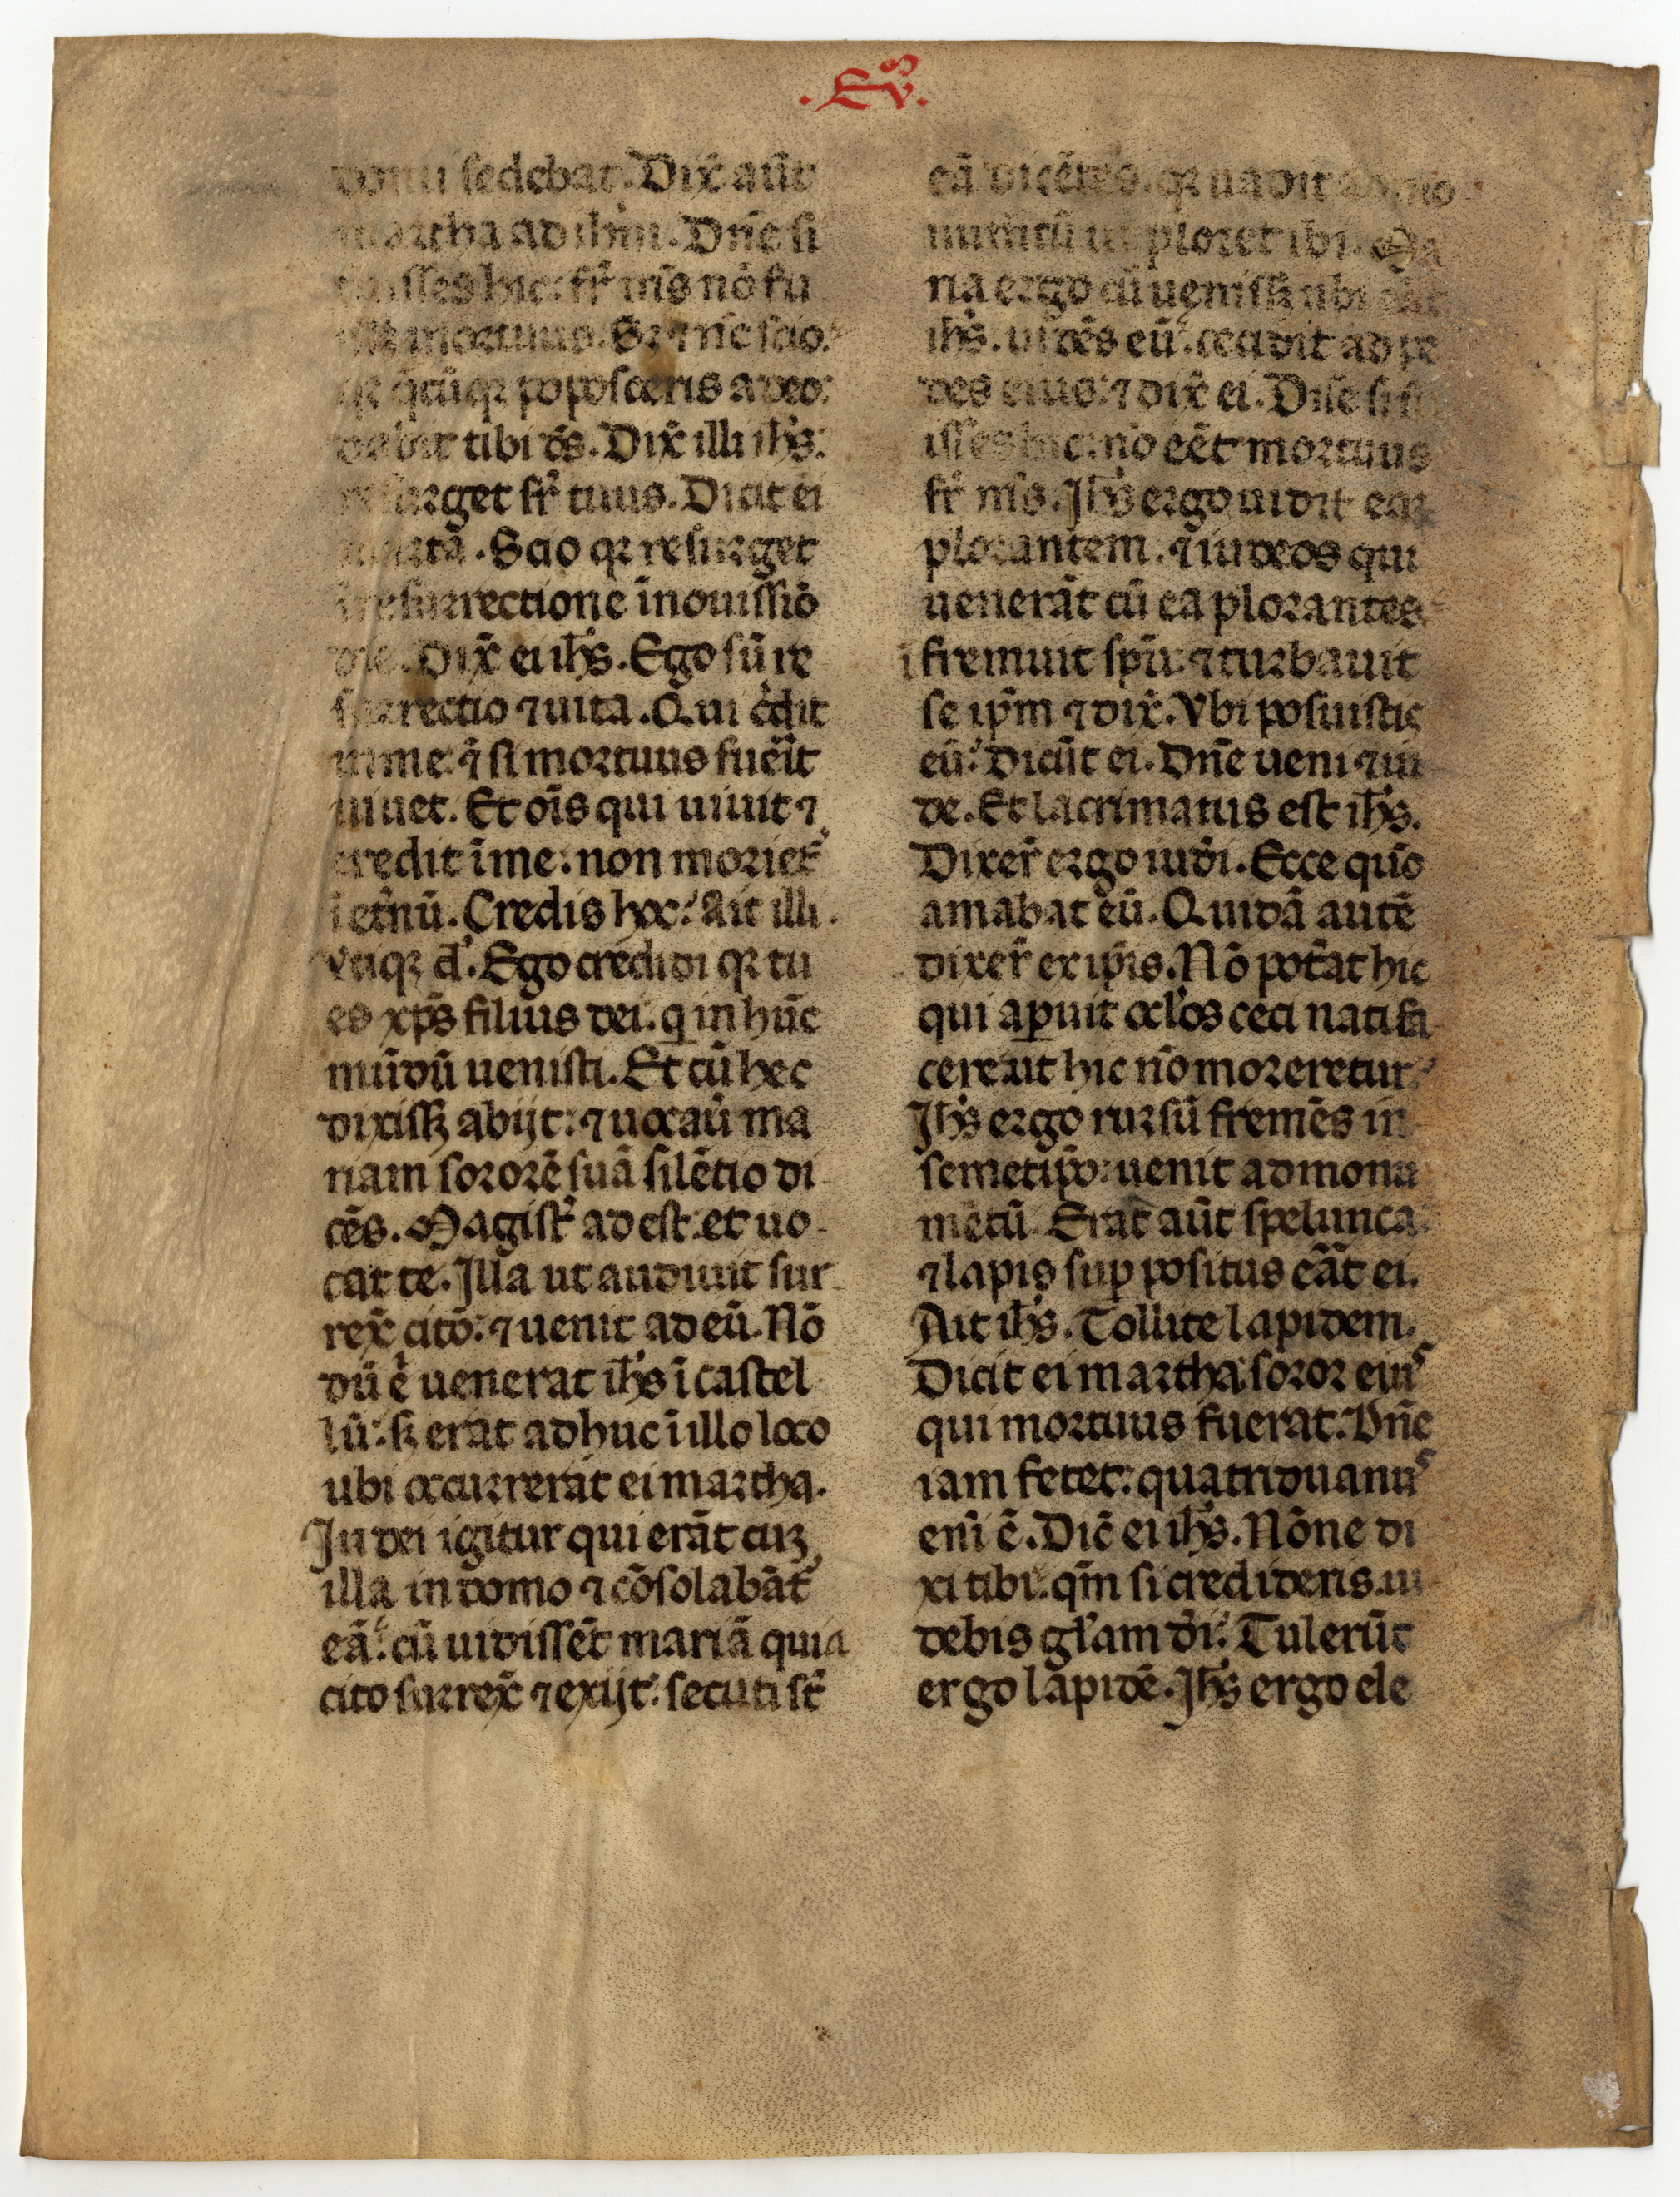 .Eѵ̅.
domi sedebat. Dix̄ aūt
martha ad ihm̄. Dn̄e si
fuisses hic: fr̄ m̄s nō fu
mortuus. Sȝ ⁊ nc̄ scio:
qꝫ q̄cūqꝫ poposceris a deo:
dabit tibi ds̄. Dix̄ illi ihs̄:
resurget fr̄ tuus. Dicit ei
martā. Scio qꝫ resurget
ī resurrectione īnouissīo
die. Dix̄ ei ihs̄. Ego sū re
surrectio ⁊ uita. Qui c̄dit
in me: ⁊ si mortuus fuēit
uiuet. Et oīs qui uiuit ⁊
credit ī me: non moriet᷑
ī et̄nū. Credis hoc? Ait illi.
Vtiqꝫ d̄. Ego credidi qꝫ tu
es xp̄s filius dei. q̄ in hūc
mūdū uenisti. Et cū hec
dixissꝫ abijt: ⁊ uocauī ma
riam sororē suā silētio di
cēs. Magist᷑ adest. et uo
cat te. Illa ut audiuit sur
rex̄ cito: ⁊ uenit ad eū. Nō
dū e͛ uenerat ihs̄ ī castel
lū: sꝫ erat adhuc ī illo loco
ubi occurrerat ei martha.
Iudei igitur qui erāt cuꝫ
illa in domo ⁊ cōsolabāt᷑
eā: cū uidissēt mariā quia
cito surrex̄ ⁊ exijt: secuti st̄
eā dicētes. qꝫ uadit ad mo
numētū ut ploret ibi. Ma
ria ergo cū uenissꝫ ubi eāt
ihs̄. uidēs eū: cecidit ad pe
des eius: ⁊ dix̄ ei. Dn̄e si fu
isses hic: nō eēt mortuus
fr̄ m̄s. Ihs̄ ergo uidit eaꝫ
plorantem. ⁊ iudeos qui
uenerāt cū ea plorantes
fremuit spū: ⁊ turbauit
se ip̄m ⁊ dix̄. Vbi posuistis
eū? Dicūt ei. Dn̄e ueni ⁊ ui
de. Et lacrimatus est ihs̄.
Dixer̄ ergo iudi̅. Ecce quō
amabat eū. Quidā autē
dixer̄ ex ip̄is. Nō pot̄at hic
qui aꝑuit ocl̄os ceci nati fa
cere ut hic nō moreretur?
Ihs̄ ergo rursū fremēs in
semetip̄o: uenit ad monu
mētū. Erat aūt spelunca:
⁊ lapis suꝑpositus eāt ei.
Ait ihs̄. Tollite lapidem.
Dicit ei martha soror eiuˢ
qui mortuus fuerat. Dn̄e
iam fetet: quatriduanuˢ
eni̅ ē. Dic̄ ei ihs̄. Nōne di
xi tibi. qm̄ si credideris. ui
debis gl̄am di̅? Tulerūt
ergo lapidē. Ihs̄ ergo ele